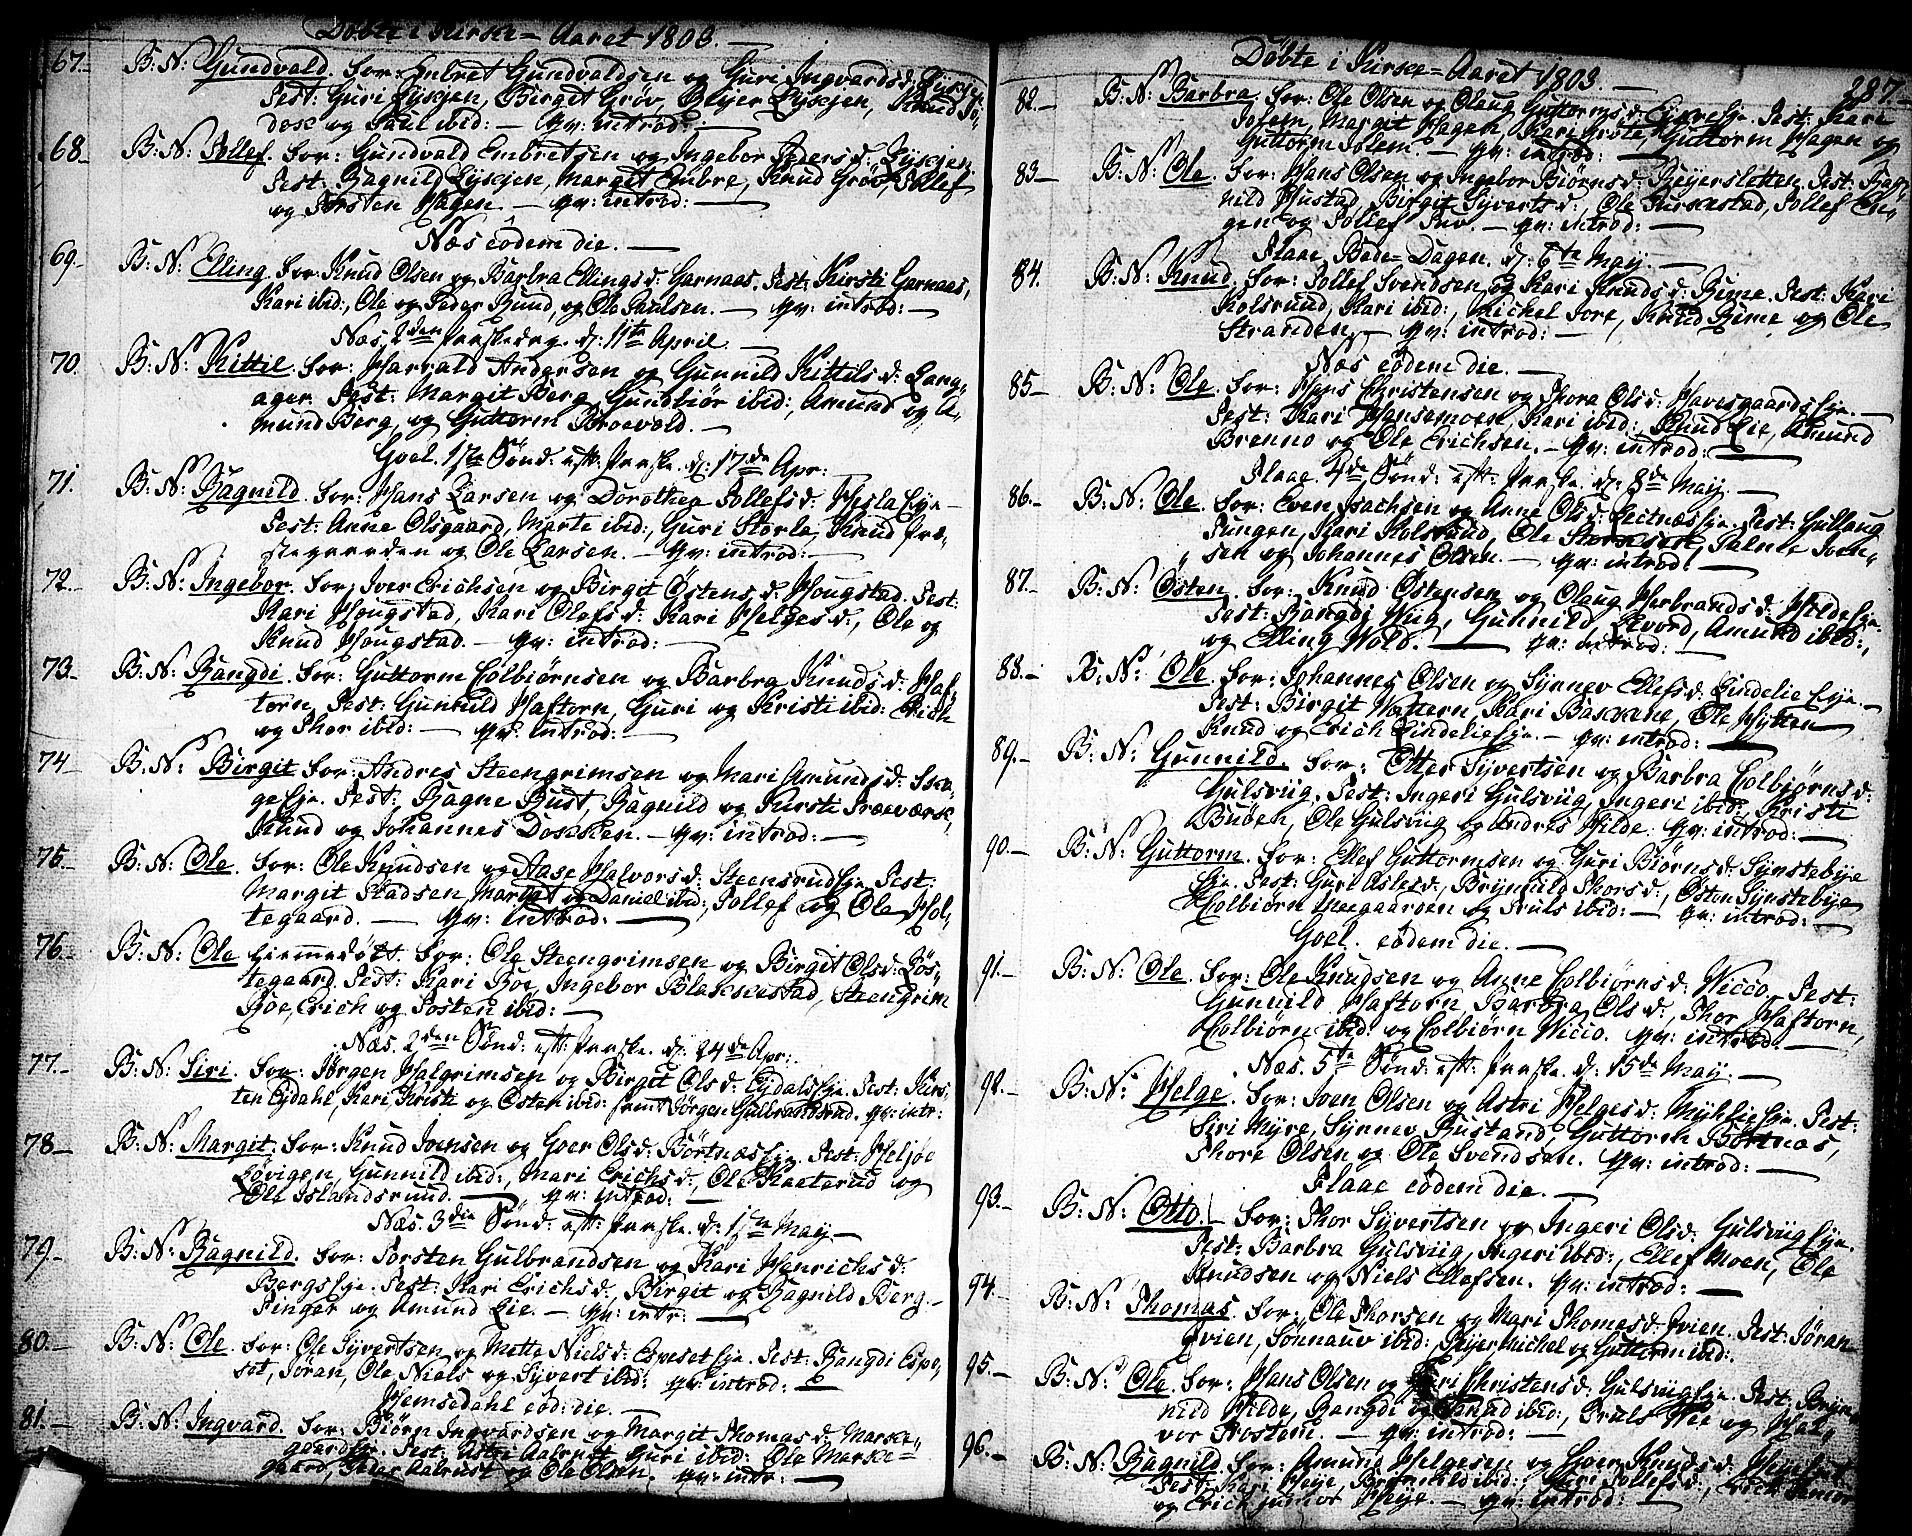 Døbte i Kirke = Aaret 1803. —
67. — B: N: Gundvald. For: Embret Gundvaldsen og Guri Ingvardsd:
Test: Guri Lykjen, Birgit Grøv, Reijer Lykjen, Knud
og Paul ibid: — qv: introd: —
68 — B: N: Tollef. For: Gundvald Embretsen og Ingebor Pedersd: Lykjen
Test: Ragnild Lykjen, Margit Embre, Knud Grøv, Tollef
og Torsten Hagen — qv: introd: —
Næs eodem die. —
69. — B: N: Elling. For: Knud Olsen og Barbra Ellingsd: Garnaas. Test: Kirsti Garnaas,
Kari ibid:, Ole og Peder Rund, og Ole Paulsen. — qv: introd: —
Næs, 2den Paaskedag. d: 11te April. —
70 B: N: Kittil. For: Harrald Andersen og Gunnild Kittilsd: Lang-
ager. Test: Margit Berg, Gundbiør ibid:, Amund og A-
mund Berg, og Guttorm Broevold. —
Goel. 1ste Sønd: eft: Paaske. d: 17de Apr:
71. B: N: Ragnild. For: Hans Larsen og Dorothea Tollefsd: Hesla Eje —
Test: Anne Olsgaard, Marte ibid:, Guri Storle, Knud Præ-
stegaarden og Ole Larsen. — qv: introd: —
72. — B: N: Ingebor. For: Iver Erichsen og Birgit Østensd: Hougstad. Test:
Kari Hougstad, Kari Olefsd: Kari Helgesd:, Ole og
Knud Hougstad. — qv: introd: —
73. — B: N: Rangdi. For: Guttorm Colbiørnsen og Barbra Knudsd: Haf-
torn. Test: Gunnild Haftorn, Guri og Kristi ibid: Erich
og Thor ibid: — qv: introd: —
74 — B: N: Birgit. For: Andres Steengrimsen og Mari Amundsd:
ge Eje. Test: Ragne Rust, Ragnild og Kirsti Træeværk,
Knud og Johannes Dokken. — qv: introd: —
75. — B: N: Ole. For: Ole Knudsen og Aase Halvorsd: Steensrud Eje. Test:
Margit Stadsen, Margit og Daniel ibid:, Tollef og Ole Hol-
tegaard. — qv: introd: —
76. — B: N: Ole hiemmedøbt. For: Ole Steengrimsen og Birgit Olsd: Løs-
tegaard. Test: Kari Roe, Ingebor Blakkestad, Steengrim
Roe, Erich og Tosten ibid: —
Næs. 2den Sønd: eft: Paaske. d: 24de Apr:
77. — B: N: Siri. For: Jørgen Halgrimsen og Birgit Olsd: Eydals Eje. Test: Kirs-
ten Eydahl, Kari, Kristi og Østen ibid: samt Jørgen Gulbrandsrud. qv: intr:
78 — B: N: Margit. For: Knud Ivensen og Goer Olsd: Børtnæs Eje. Test: Heljøe
Løvigen, Gunnild ibid:, Mari Erichsd:, Ole Kaaterud og
Ole Islandsrund. — qv: introd: —
Næs. 3die Sønd: eft: Paaske. d: 1ste May —
79. — B: N: Ragnild. For: Torsten Gulbrandsen og Kari Henrichsd:
Bergs Eje. Test: Kari Erichsd:, Birgit og Ragnild Berg. —
Finger og Amund Lie. — qv: intr: —
80. — B: N: Ole. For: Ole Syvertsen og Mette Nielsd: Espeset Eje. Test: Rangdi Espe-
set, Jøran, Ole, Niels og Syvert ibid: qv: introd: —
Hemsedahl eod: die. —
81. — B: N: Ingvard. For: Biørn Ingvardsen og Margit Thomasd: Marke-
gaard Eje. Test: Astri Aalrust, Guri ibid: Ole Marke-
gaard, Peder Aalrust og Ole Olsen. qv: intr: —
Døbte i Kirke = Aaret 1803. — 287.
82. — B: N: Barbra. For: Ole Olsen og Olaug Guttormsd: Eje. Test: Kari
Solem, Margit Hagen, Kari Grøte, Guttorm Hagen og
Guttorm Solem. — qv: introd: —
83 — B: N: Ole. For: Hans Olsen og Ingebor Biørnsd: Reijersletten. Test: Rag-
nild Hustad, Birgit Syvertsd:, Ole Turkestad, Tollef En-
gen og Tollef — qv: introd: —
Flaae Bede-Dagen. d: 6te May. —
84. B: N: Knud. For: Tollef Svendsen og Kari Knudsd: Rime. Test: Kari
Kolsrund, Kari ibid:, Michel Fore, Knud Rime og Ole
Stranden. — qv: introd: —
Næs eodem die. —
85 — B: N: Ole. For: Hans Christensen og Thora Olsd: Havesgaards Eje. —
Test: Kari Hansemoen, Kari ibid:, Knud Lie, Amund
Brenno og Ole Erichsen. — qv: introd: —
Flaae. 4de Sønd: eft: Paaske. d: 8de May. —
86. — B: N: Ole. For: Even Isachsen og Anne Olsd: Leitnæs Eje. Test: Gullaug
Tungen, Kari Kolsrud, Ole Palme Iven-
sen og Johannes Olsen. — qv: introd: —
87. — B: N: Østen. For: Knud Østensen og Olaug Harbrandsd: Hilde Eje.
Test: Rangdi Wiig, Gunnild Skvord, Amund ibid:,
og Elling Wold. — qv: introd: —
88. — B: N: Ole. For: Johannes Olsen og Synnev Ellefsd: Lindelie Eje. —
Test: Birgit Wættern, Kari Bakkene, Ole Hytten
Knud og Erich Lindelie Eje. — qv: introd: —
89. — B: N: Gunnild. For: Otter Syvertsen og Barbra Colbiørnsd:
Gulsviig. Test: Ingeri Gulsviig, Ingeri ibid: Kristi
Buøen, Ole Gulsviig og Andres Hilde. qv: introd: —
90. — B: N: Guttorm. For: Ellef Guttormsen og Guri Biørnsd: Synstebye
Eje. Test: Guri Aslesd:, Brynild Thorsd:, Østen Synstebye
Colbiørn Neegaarden og Truls ibid: — qv: introd: —
Goel. eodem die. —
91. — B: N: Ole. For: Ole Knudsen og Anne Colbiørnsd: Wicco. Test:
Gunnild Haftorn, Barbra Olsd:, Thor Haftorn,
Colbiørn ibid: og Colbiørn Wicco. qv: introd: —
Næs. 5te Sønd: eft: Paaske. d: 15de May. —
92. — B: N: Helge. For: Iven Olsen og Astri Helgesd: Myhlie Eje. Test:
Siri Myre, Synnev Rustand, Guttorm Børtnæs,
Thore Olsen og Ole Svendsen. qv: introd: —
Flaae eodem die. —
93. — B: N: Otto. — For: Thor Syvertsen og Ingeri Olsd: Gulsviig Eje.
Test: Barbra Gulsviig, Ingeri ibid:, Ellef Moen, Ole
Knudsen og Niels Ellefsen. qv: introd: —
94. — B: N: Thomas. For: Ole Thorsen og Mari Thomasd: Jvien. Test: Jøran
Jvien, Sønnauv ibid: Reijer Michel og Guttorm ibid:
95. — B: N: Ole. For: Hans Olsen og Christensd: Gulsviig Eje. Test: Bryn-
nild Hilde, Rangdi og Knud ibid:, Truls Wee og Hal-
vor Trostem. — qv: introd: —
96. — B: N: Ragnild. For: Amund Helgesen og Goer Knudsd:
Test: Kari Heye, Brynnild ibid:, Guri Tollefsd:, Erich Senior
og Erich junior Heye. — qv: introd: —